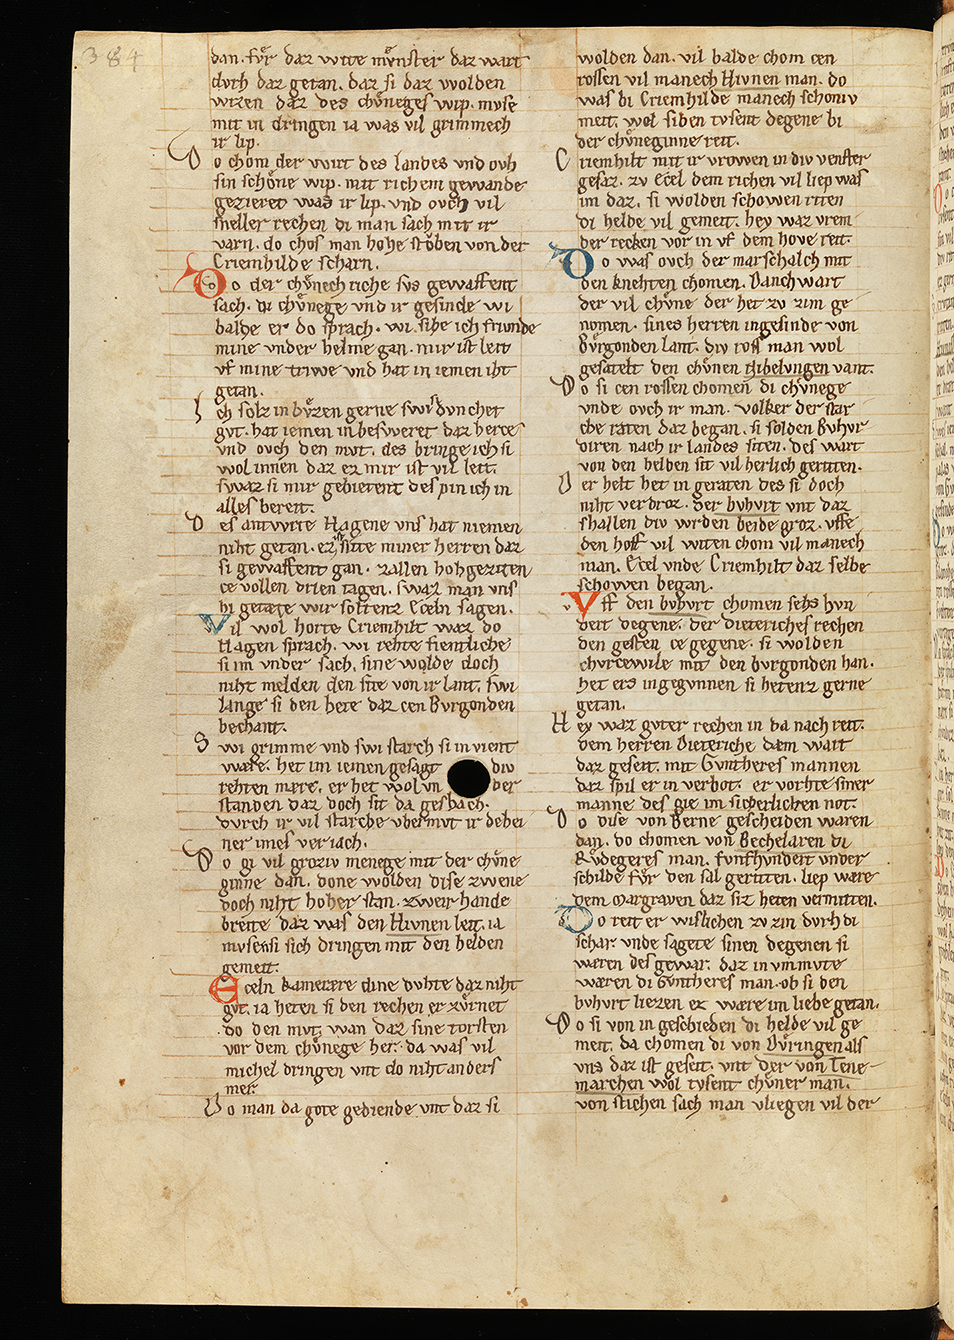 384
dan. fvͤr daz wite mvͤnster daz wart
dvrh daz getan. daz si daz wolden
wizen daz des chvͤneges wip. mvse
mit in dringen ia was vil grimmech
ir lip.
Do chom der wirt des landes vnd ovh
sin schoͤne wip. mit richem gewande
gezieret was ir lip. vnd ovch vil
sneller rechen di man sach mit ir
varn. do chos man hohe stoͤben von der
Criemhilde scharn.
Do der chvͤnech riche svs gewaffent
sach. di chvͤnege vnd ir gesinde wi
balde er do sprach. wi sihe ich friunde
mine vnder helme gan. mir ist leit
vf mine triwe vnd hat in iemen iht
getan.
Ich solz in bvͤzen gerne swi dvnchet
gvt. hat iemen in besweret daz herce
vnd ovch den mvt. des bringe ich si
wol innen daz ez mir ist vil leit.
swaz si mir gebietent des pin ich in
alles bereit.
Des antwrte Hagene vns hat niemen
niht getan. ez ist site miner herren daz
si gewaffent gan. zallen hohgeziten
ce vollen drien tagen. swaz man vns
hi getæte wir soltenz Eceln sagen.
Vil wol horte Criemhilt waz do
Hagen sprach. wi rehte fientliche
si im vnder sach. sine wolde doch
niht melden den site von ir lant. swi
lange si den hete daz cen Bvrgonden
bechant.
Swi grimme vnd swi starch si in vient
wære. het im iemen gesagt div
rehten mære. er het wol vn der
standen daz doch sit da geschach.
dvrch ir vil starche vbermvt ir dehei
ner imes veriach.
Do gi vil groziv menege mit der chvͤne
ginne dan. done wolden dise zwene
doch niht hoher stan. zweir hande
breite daz was den Hivnen leit. ia
mvsensi sich dringen mit den helden
gemeit.
Eceln kamerere dine dvhte daz niht
gvt. ia heten si den rechen erzvͤrnet
do den mvt. wan daz sine torsten
vor dem chvͤnege her. da was vil
michel dringen vnt do niht anders
mer.
Do man da gote gediende vnt daz si
wolden dan. vil balde chom cen
rossen vil manech Hivnen man. do
was bi Criemhilde manech schoniv
meit. wol siben tvsent degene bi
der chvͤneginne reit.
Criemhilt mit ir vrowen in div venster
gesaz. zv Ecel dem richen vil liep was
im daz. si wolden schowen riten
di helde vil gemeit. hey waz vrem
der recken vor in vf dem hove reit.
Do was ovch der marschalch mit
den knehten chomen. Danchwart
der vil chvͤne der het zv zim ge
nomen. sines herren ingesinde von
Bvͤrgonden lant. div ross man wol
gesatelt den chvͤnen Nibelvngen vant.
Do si cen rossen chomen di chvͤnege
vnde ovch ir man. volker der star
che raten daz began. si solden Bvhvr
diren nach ir landes siten. des wart
von den helden sit vil herlich geriten.
Der helt het in geraten des si doch
niht verdroz. der bvhvrt vnt daz
shallen div wrden beide groz. vffe
den hoff vil witen chom vil manech
man. Ecel vnde Criemhilt daz selbe
schowen began.
Vff den bvhvrt chomen sehs hvn
dert degene. der Dieteriches rechen
den gesten ce gegene. si wolden
chvrcewile mit den bvrgonden han.
het ers in gegvnnen si hetenz gerne
getan.
Hey waz gvter rechen in da nach reit.
dem herren Dieteriche dæm wart
daz geseit. mit Gvntheres mannen
daz spil er in verbot. er vorhte siner
manne des gie im sicherlichen not.
Do dise von Berne gescheiden waren
dan. do chomen von Bechelaren di
Rvͤdegeres man. fvnfhvndert vnder
schilde fvͤr den sal geriten. liep ware
dem margraven daz siz heten vermiten.
Do reit er wislichen zv zin dvrh di
schar. vnde sagete sinen degenen si
waren des gewar. daz in vnmvte
wæren di Gvntheres man. ob si den
bvhvrt liezen ez wære im liebe getan.
Do si von in geschieden di helde vil ge
meit. da chomen di von Dvͤringen als
vns daz ist geseit. vnt der von Tene
marchen wol tvsent chvͤner man.
von stichen sach man vliegen vil der